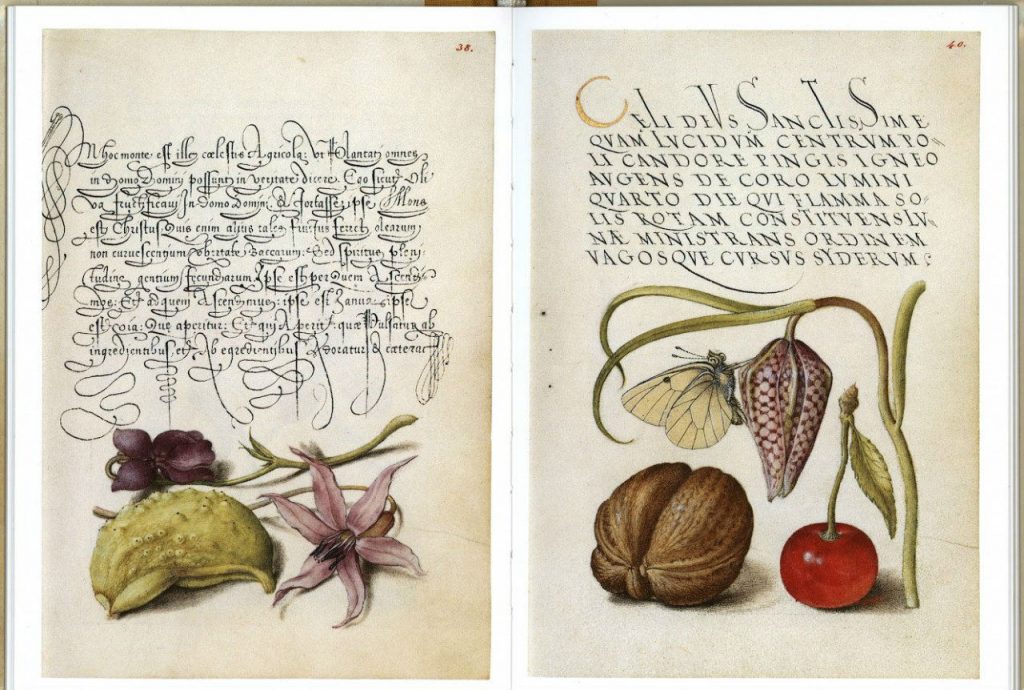 38.
In hoc monte est ille cœlestis Agricola: ut Plantati omnes
in domo Domini possunt in veritate dicere. Ego sicut Oli
va fructificavi In domo Domini. & fortasse ipse Mons
est Christus. Quis enim alius tales fructus feret olearum
non curvescentium vbertate Baccarum; sed spiritus pleni
tudine gentium fecundarum. Ipse est per quem Ascendi
mus: Et ad quem Ascendimus: ipse est Ianua: ipse
est via: Que aperitur: Et qui Aperit: quæ Pulsatur ab
ingredientibus, et Ab egredientibus Adoratur & cætera
40.
CELI DEVS SANCTISSIME
QUAM LUCIDVM CENTRUM PO=
LI CANDORE PINGIS IGNEO
AUGENS DE CORO LVMINI
QUARTO DIE QUI FLAMMA SO=
LIS ROTAM CONSTITVENS LV=
NÆ MINISTRANS ORDINEM
VAGOSQUE CVRSUS SYDERVM: